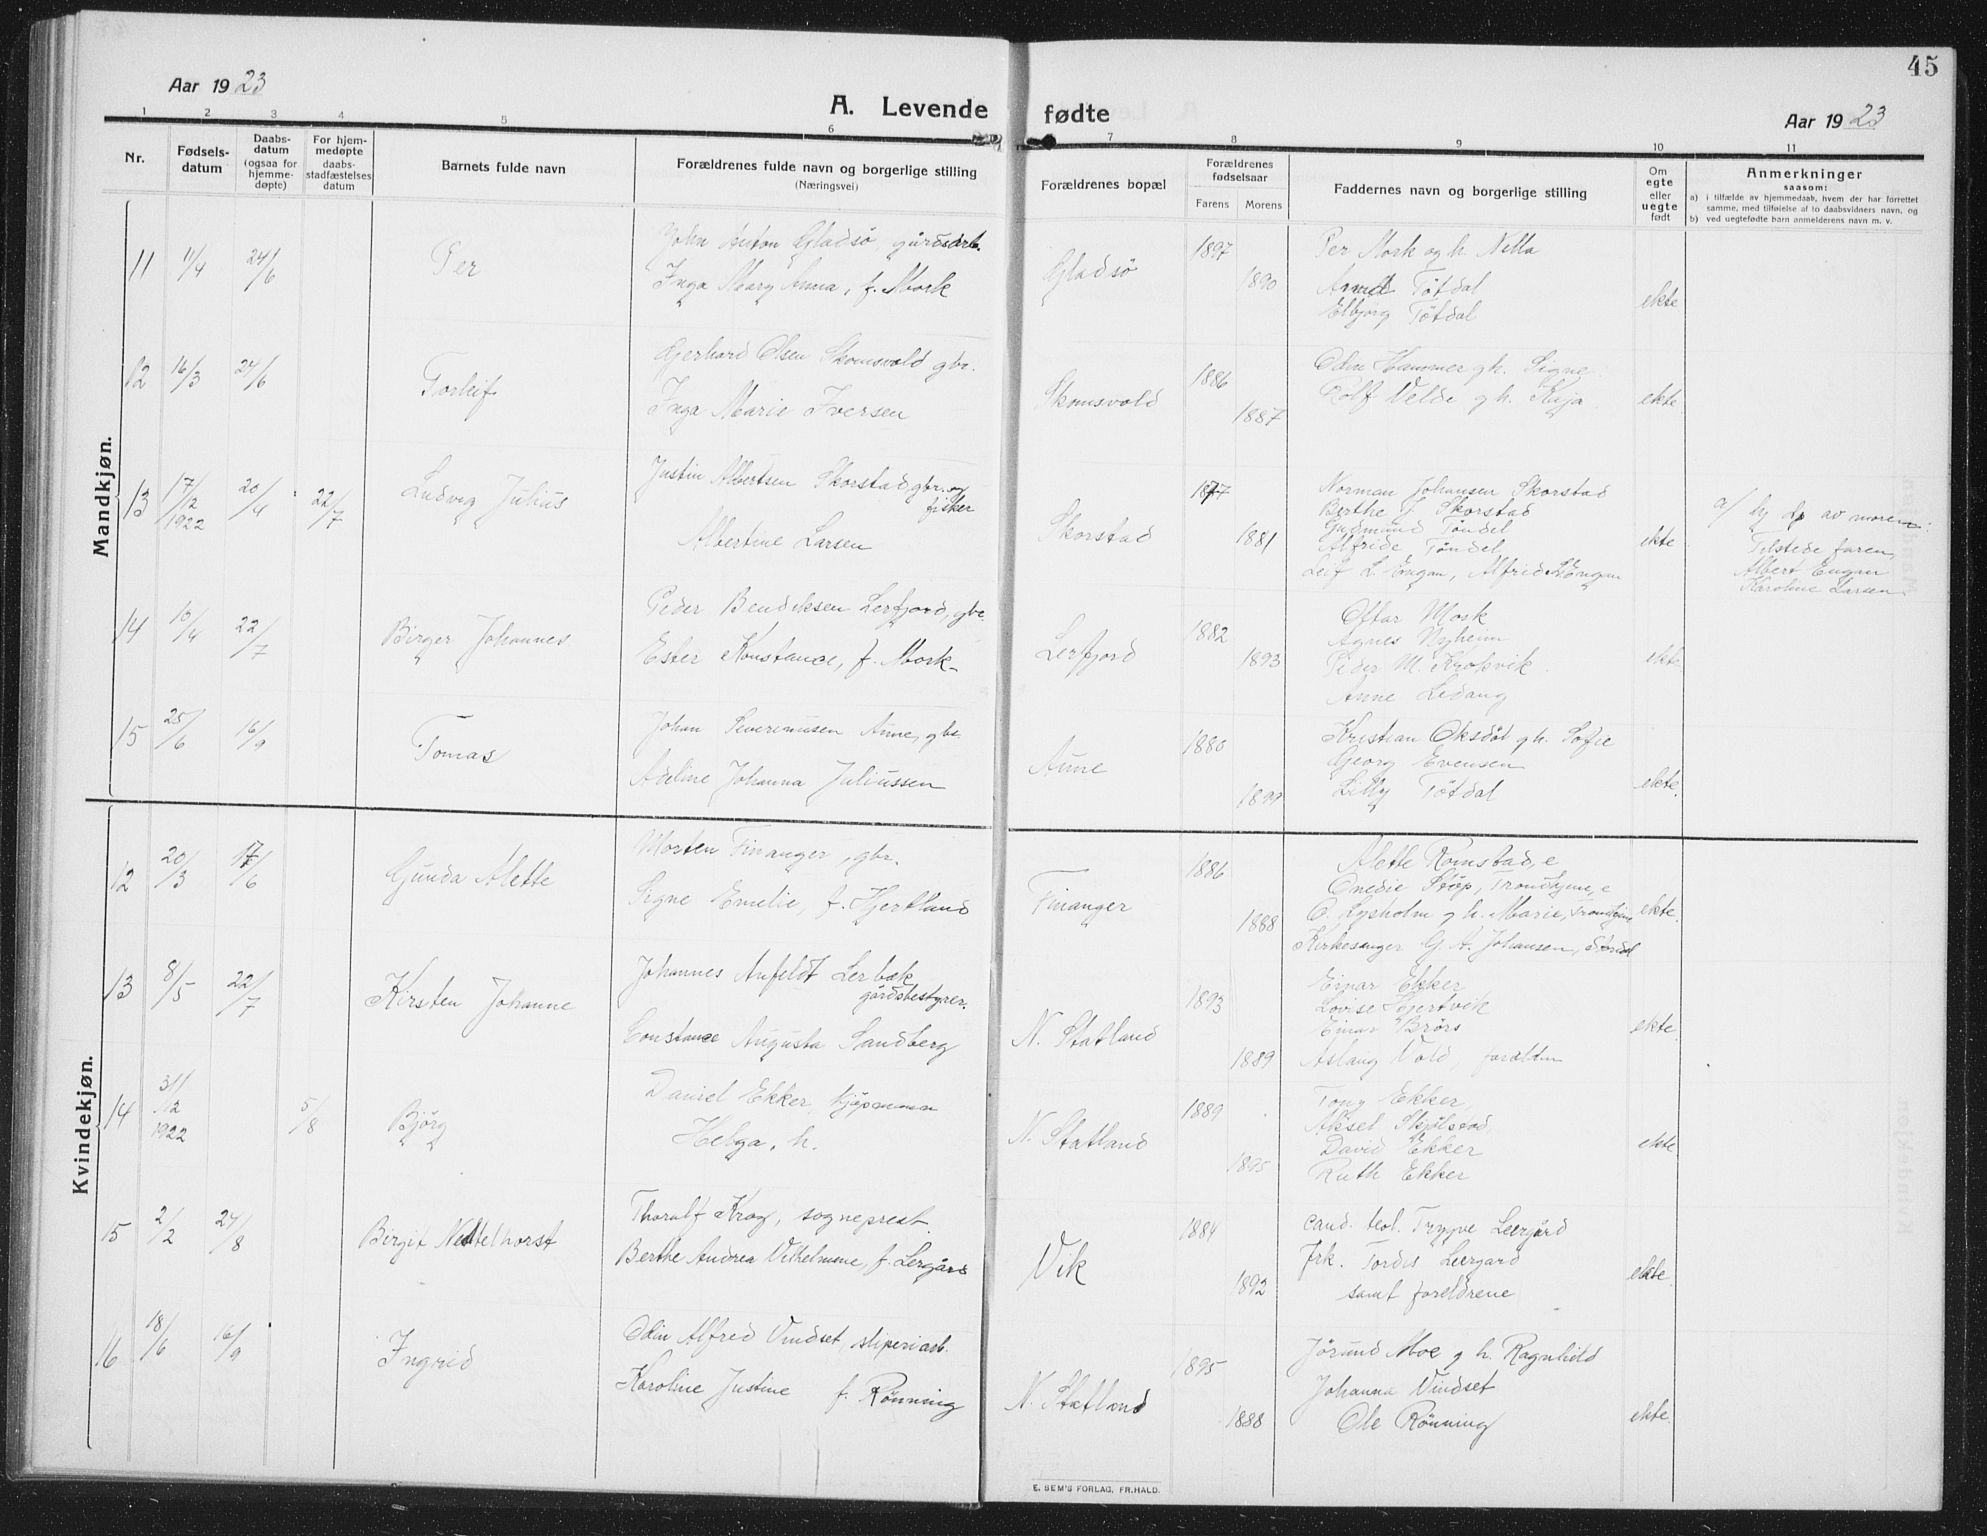 45
Aar 1923
A. Levende fødte
Aar 1923
1 2 3 4 5 6 7 8 9 10 11
Nr.
Fødsels-
datum
Daabs-
datum
(ogsaa for
hjemme-
døpte)
For hjem-
medøpte
daabs-
stadfæstelses
datum
Barnets fulde navn
Forældrenes fulde navn og borgerlige stilling
(Næringsvei)
Forældrenes bopæl
Forældrenes
fødselsaar
Farens Morens
Faddernes navn og borgerlige stilling
Om
egte
eller
uegte
født
Anmerkninger
saasom:
a) i tilfælde av hjemmedaab, hvem der har forrettet
samme, med tilføielse af to daabsvidners navn, og
b) ved uegtefødte barn anmelderens navn m. v.
Mandkjøn.
11 11/4 24/6 Per
John Anton Gladsö, gårdsarb.
Inga Marg Anna, f. Mork
Gladsö 1897 1890
Per Mork og h. Nella
Arnet Tötdal
Elbjorg Tötdal
ekte
12 16/3 24/6 Torleif
Gjerhard Olsen Skomsvold gbr.
Inga Marie Iversen
Skomsvold 1886 1887
Odin Hammer g h. Signe
Rolf Velde g h. Kaja
ekte
13 17/12 1922 20/4 22/7 Ludvig Julius
Justin Albertsen Skorstad, gbr. og
fisker
Albertine Larsen
Skorstad 1877 1881
Norman Johansen Skorstad
Berthe J. Skorstad
Gudmund Töndel
Alfride Töndel
Leif L. Engan, Alfrid Engan
ekte
a/ hj dp av moren:
Tilstede faren,
Albert Engan
Karoline Larsen
14 10/4 22/7 Birger Johannes
Peder Bendiksen Lerfjord, gbr
Ester Konstance, f. Mork
Lerfjord 1882 1893
Oftar Mork
Agnes Nyheim
Peder M. Krokvik
Anne Ledang
ekte
15 25/6 16/9 Tomas
Johan Severinusen Aune, gbr.
Adeline Johanna Juliussen
Aune 1880 1899
Kristian Oksdöl g h. Sofie
Georg Evensen
Lilly Tötdal
ekte.
Kvindekjøn.
12 20/3 17/6 Gunda Alette
Morten Finanger, gbr.
Signe Emelie, f. Hjertland
Finanger 1886 1888
Alette Romstad, e
Onedie Stöp, Trondhjem, e
O. Lysholm g h. Marie, Trondhjem
Kirkesanger G. A. Johansen,
ekte.
13 8/5 22/7 Kirsten Johanne
Johannes Anfeldt Lerbæk
gårdsbestyrer.
Constance Augusta Sandberg
N. Statland 1893 1889
Einar Ekker
Lovise Hjertvik
Einar Brörs
Aslaug Vold, foreldrene
ekte
14 31/12 1922 5/8 Björg
Daniel Ekker, kjöpmann
Helga, h.
N. Statland 1889 1895
Tony Ekker,
Aksel Skjölstad
David Ekker
Ruth Ekker
ekte
15 2/2 24/8 Birgit Nettelhorst
Thoralf Krog, sogneprest
Berthe Andrea Vilhelmine, f. Lergård
Vik 1884 1892
cand. teol. Trygve Leergård
Frk. Tordis Leergard
samt foreldrene
ekte
16 18/6 16/9 Ingrid
Odin Alfred Vindset, sliperiarb.
Karoline Justine f. Rönning
N. Statland 1895 1888
Jörund Moe g h. Ragnhild
Johanna Vindset
Ole Rönning
ekte.
E. SEM'S FORLAG, FR.HALD.